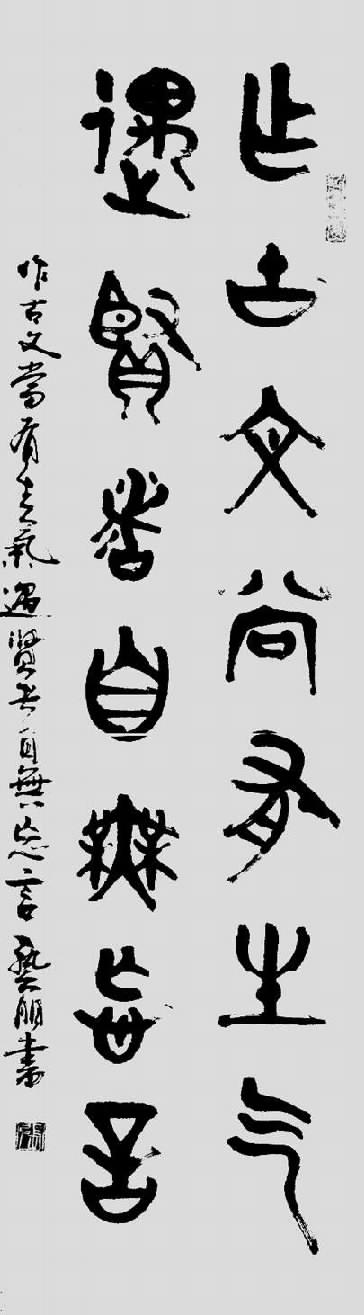 乍古文尚有生气
遇賢者自無妄言
作古文當有生氣遇賢者自無言朋書